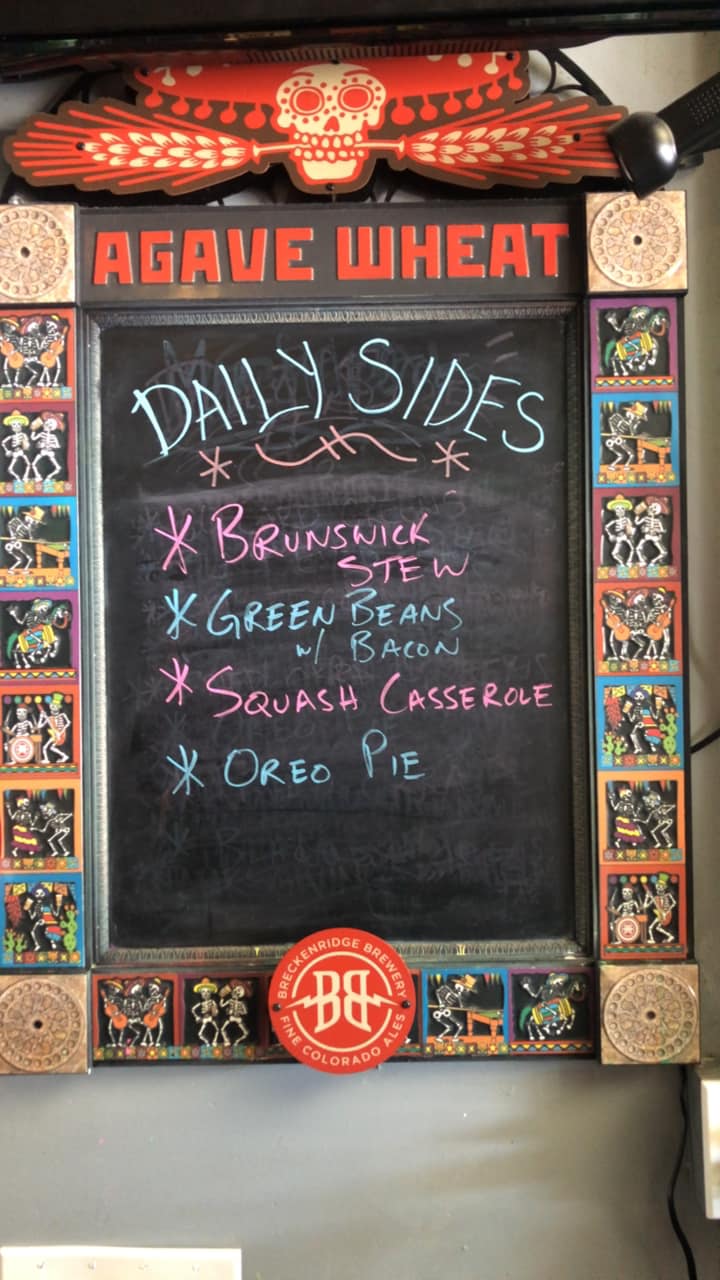 AGAVE WHEAT
DAILY SIDES
* BRUNSWICK
STEW
* GREEN BEANS
w/ BACON
* SQUASH CASSEROLE
* OREO PIE
BRECKENRIDGE BREWERY
BB
FINE COLORADO ALES